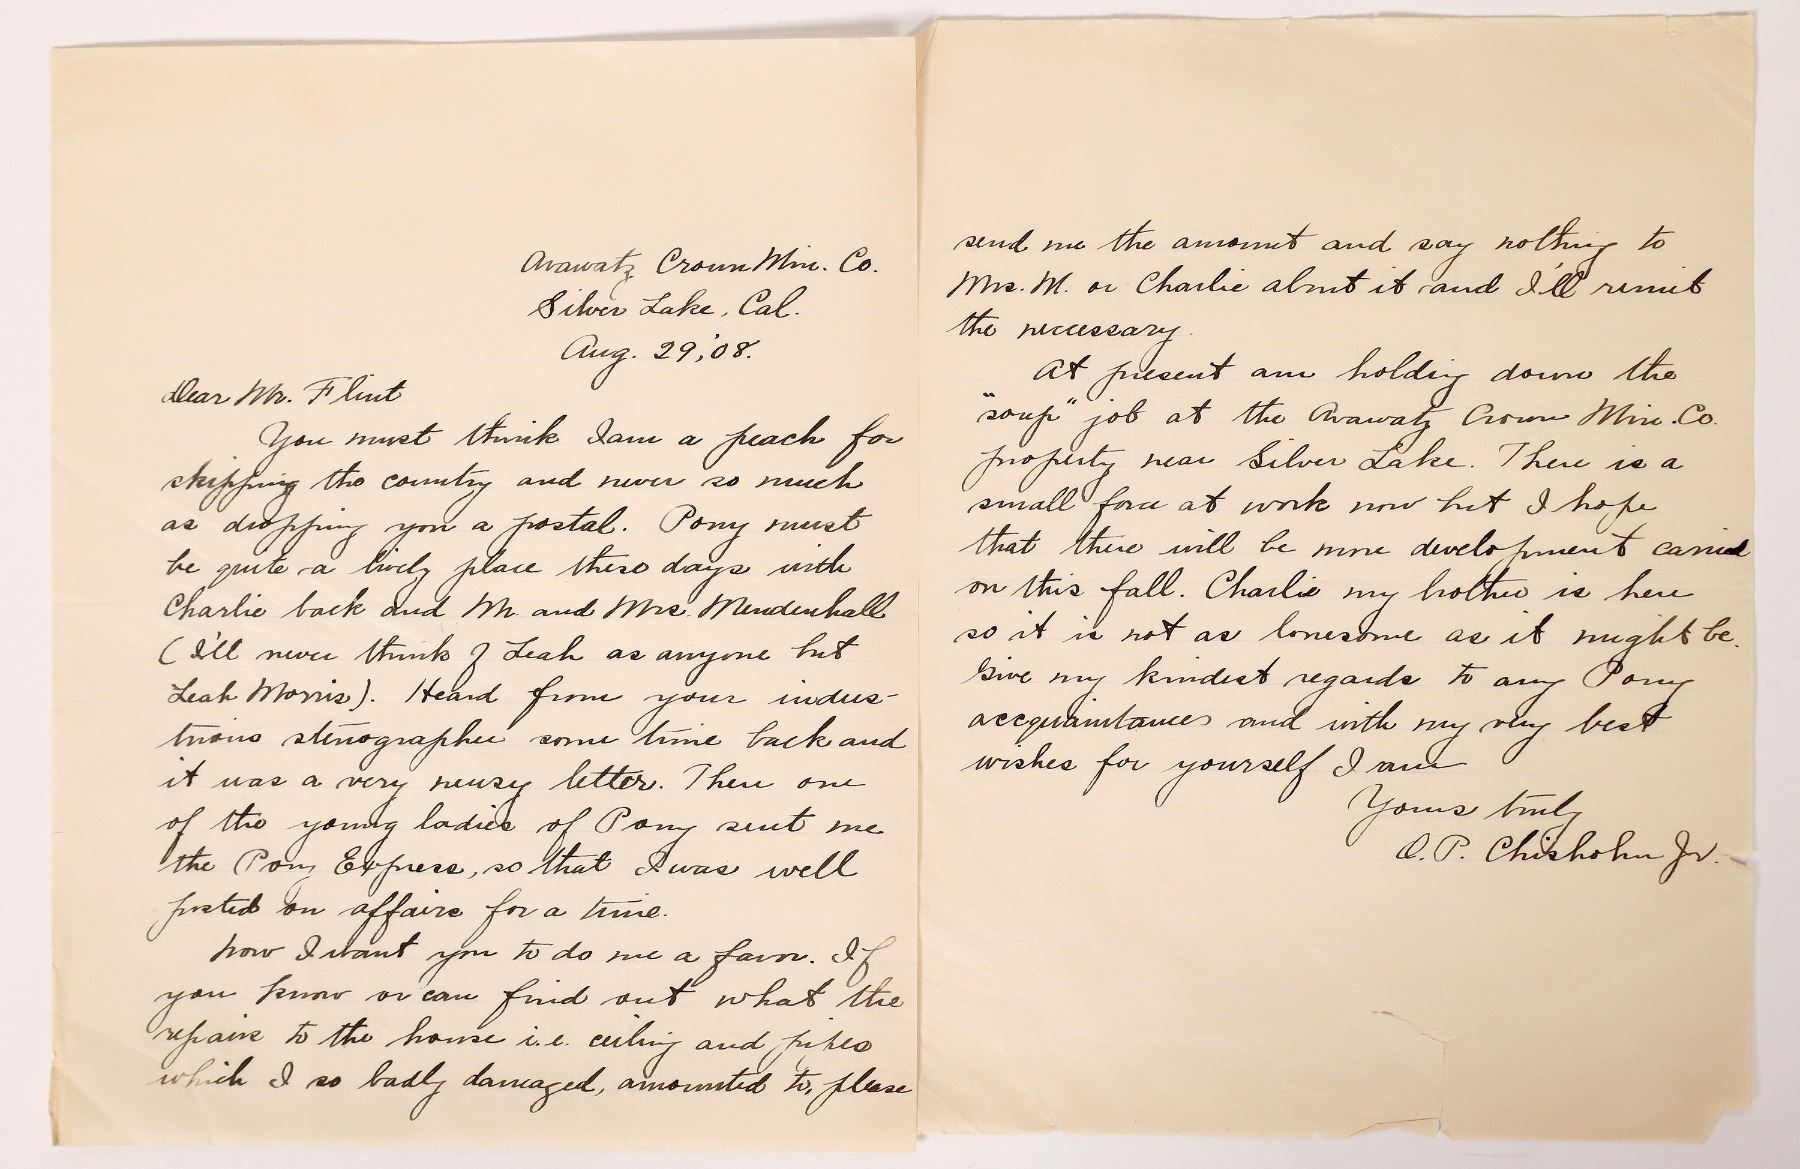 Avawatz Crown Min. Co.
Silver Lake, Cal.
Aug. 29,'08.
Dear Mr. Flint
You must think I am a peach for
skipping the country and never so much
as dropping you a postal. Pony must
be quite a lively place these days with
Charlie back and Mr. and Mrs. Mendenhall
(I'll never think of Leah as anyone but
Leah Morris). Heard from your indus-
trious stenographer some time back and
it was a very newsy letter. Then one
of the young ladies of Pony sent me
the Pony Express, so that I was well
posted on affairs for a time.
Now I want you to do me a favor. If
you know or can find out what the
repairs to the house i.e. ceiling and pipes
which I so badly damaged, amounted to, please
send me the amount and say nothing to
Mrs. M. or Charlie about it and I'll remit
the necessary.
At present am holding down the
"soup" job at the Avawatz Crown Min. Co.
property near Silver Lake. There is a
small force at work now but I hope
that there will be more development carried
on this fall. Charlie my brother is here
so it is not as lonesome as it might be.
Give my kindest regards to any Pony
accquaintances and with my very best
wishes for yourself I am
Yours truly
O. P. Chisholm Jr.